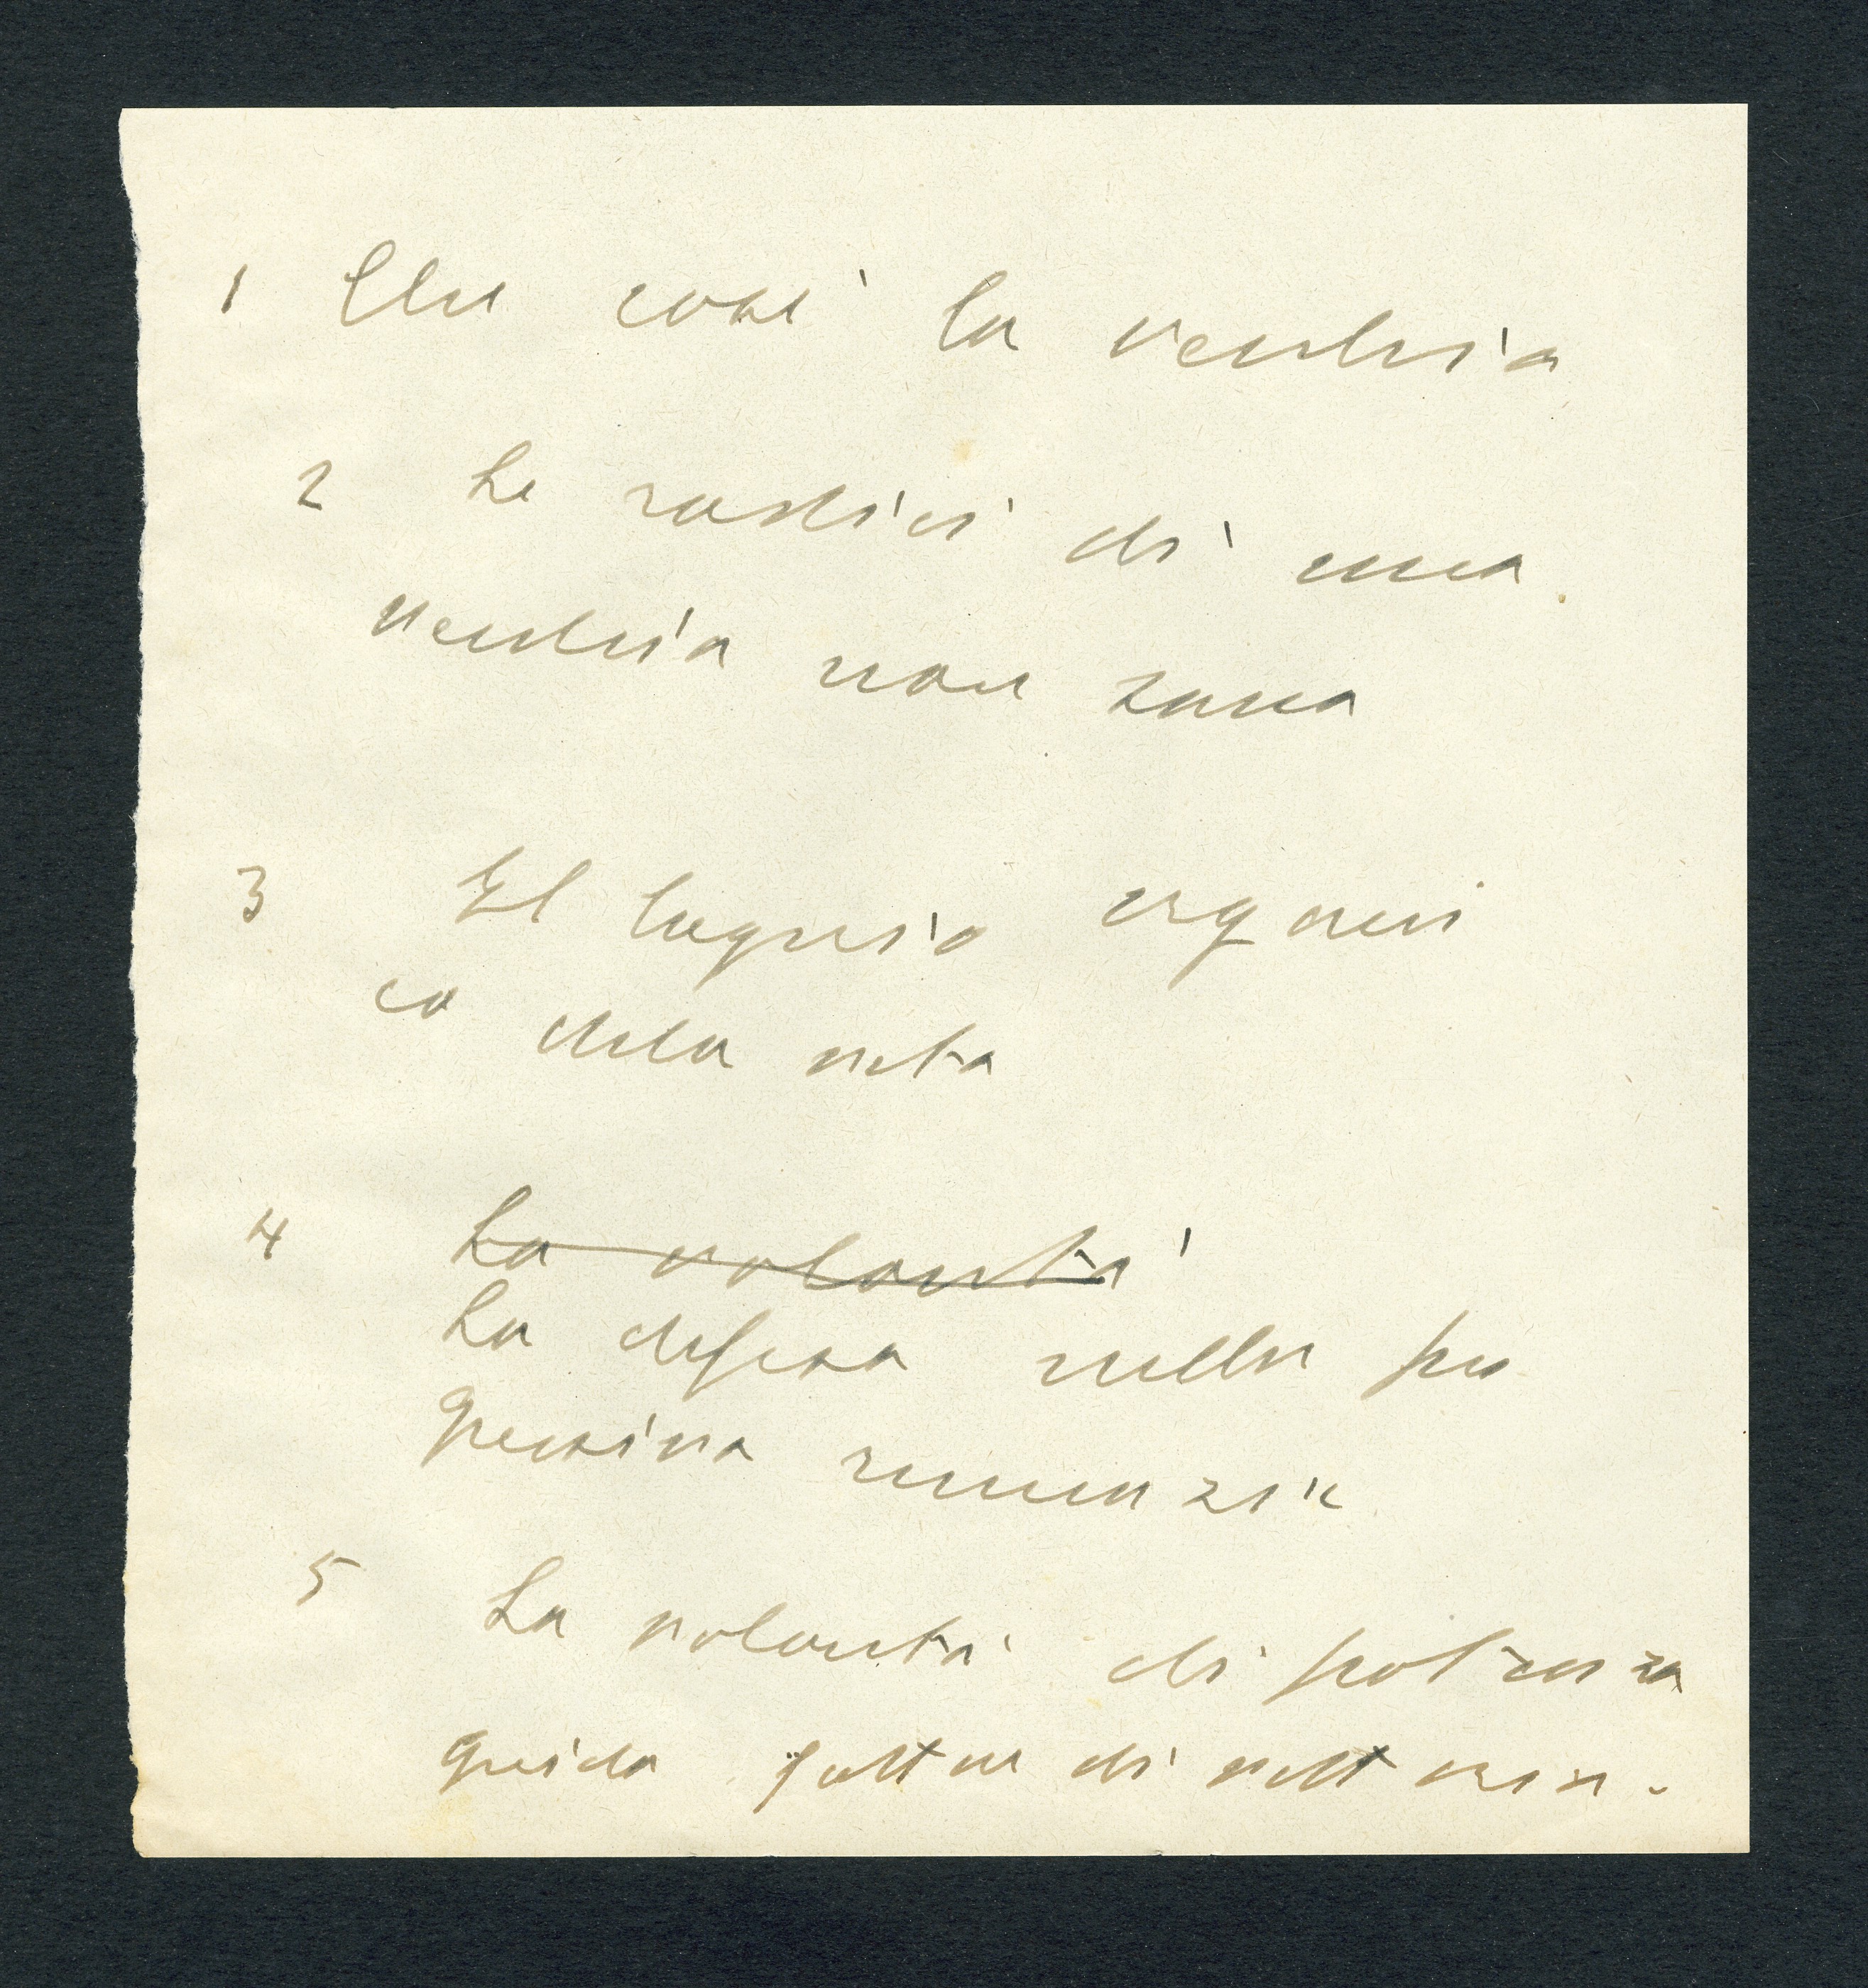 1 Che cosè la vecchia
2 Le radici di una
vecchia non sana
3 Il logorio organi
co della vita
4 La volontà
La difesa nella pro
gressiva rinunzia
5 La volontà di potenza
guida fattore di vittoria.